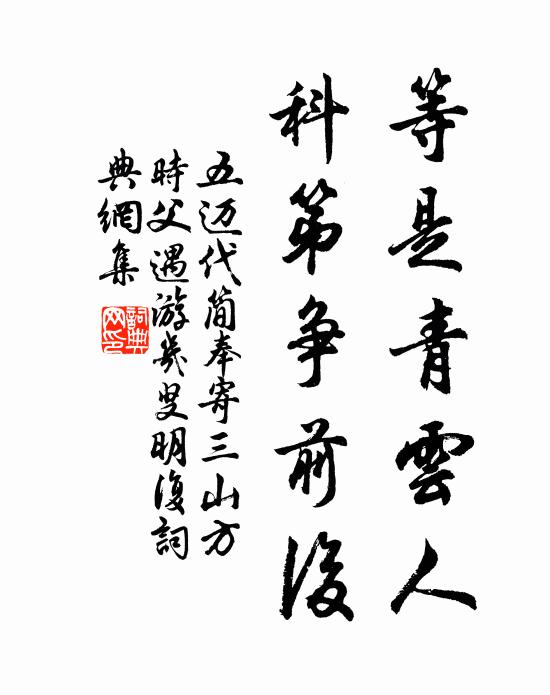 等是青雲人
科第争前後
五迈代简奉寄三山方
時父遇游幾叟明復詞
典網集
詞典
网印